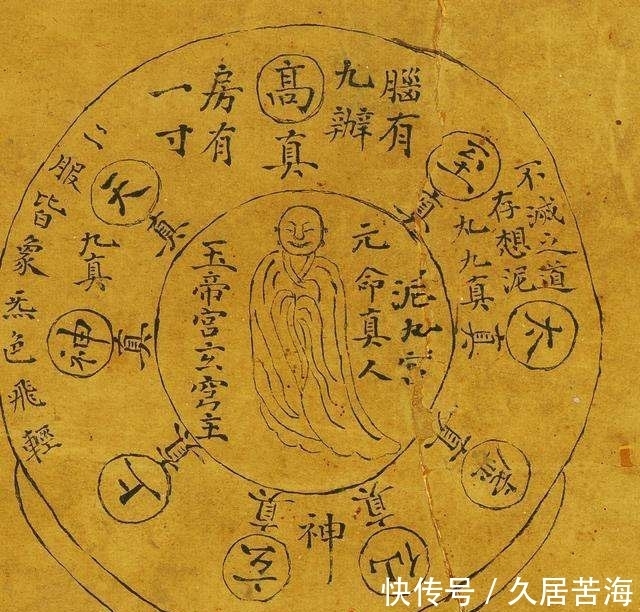 腦有
九辦
高
真
房有
一寸
不滅之道
存想泥
太
真
泥九宮
元命真人
玉帝宮玄穹主
天
真
九真
神
真
上
真
服皆象炁色飛輕
神
真
真
真
真
快传号 / 久居苦海